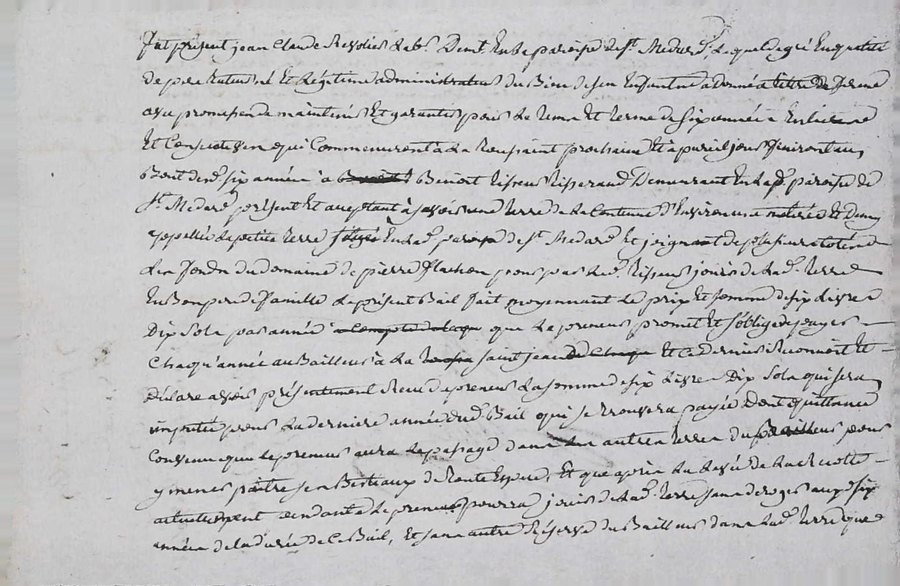 fut présent jean Claude Revolier Lab.r Dem.t En la paroisse de S.t Médard, Lequel de gré En qualité
de pere naturel Et Légitime administrateur du Bien de ses Enfants a donné a titre de ferme
avec promesse de maintenir Et garantir pour Le tems Et terme de six années Entieres
Et Consecutives qui Commenceront à La Toussaint prochaine Et à pareil jour finiront au
Bout desd. six années à Benoit Tisseur Tisserand Demeurant En lad. paroisse de
S.t Médard présent Et acceptant à sçavoir une terre de La Contenue d'Environ une meterée Et Demy
appellée La petite terre située En lad. paroisse de S.t Médard Et joignant de plusieurs cotés
Les fonds du domaine de pierre flachon pour par led. Tisseur jouir de lad. terre
En Bon pere de famille Le présent Bail fait moyennant Le prix Et somme de six Livres
Dix Sols par année que Le preneur promet Et s'oblige de payer
Chaqu'année au Bailleur à La saint jean Et Ce Dernier Reconnoit Et
déclare avoir présentement Reçu du preneur La somme de six Livres Dix Sols qui sera
imputée pour La derniere année dud. Bail qui se trouvera payée Dont quittance
Convenu que Le preneur aura Le passage dans les autres terres du Bailleur pour
y mener paitre ses Bestiaux de toute Espece, Et que après La Levée de La Recolte
actuellement pendante Le preneur pourra jouir de lad. terre sans déroger auxd. six
années de La durée de Ce Bail, Et sans autre Réserve du Bailleur dans lad. terre que